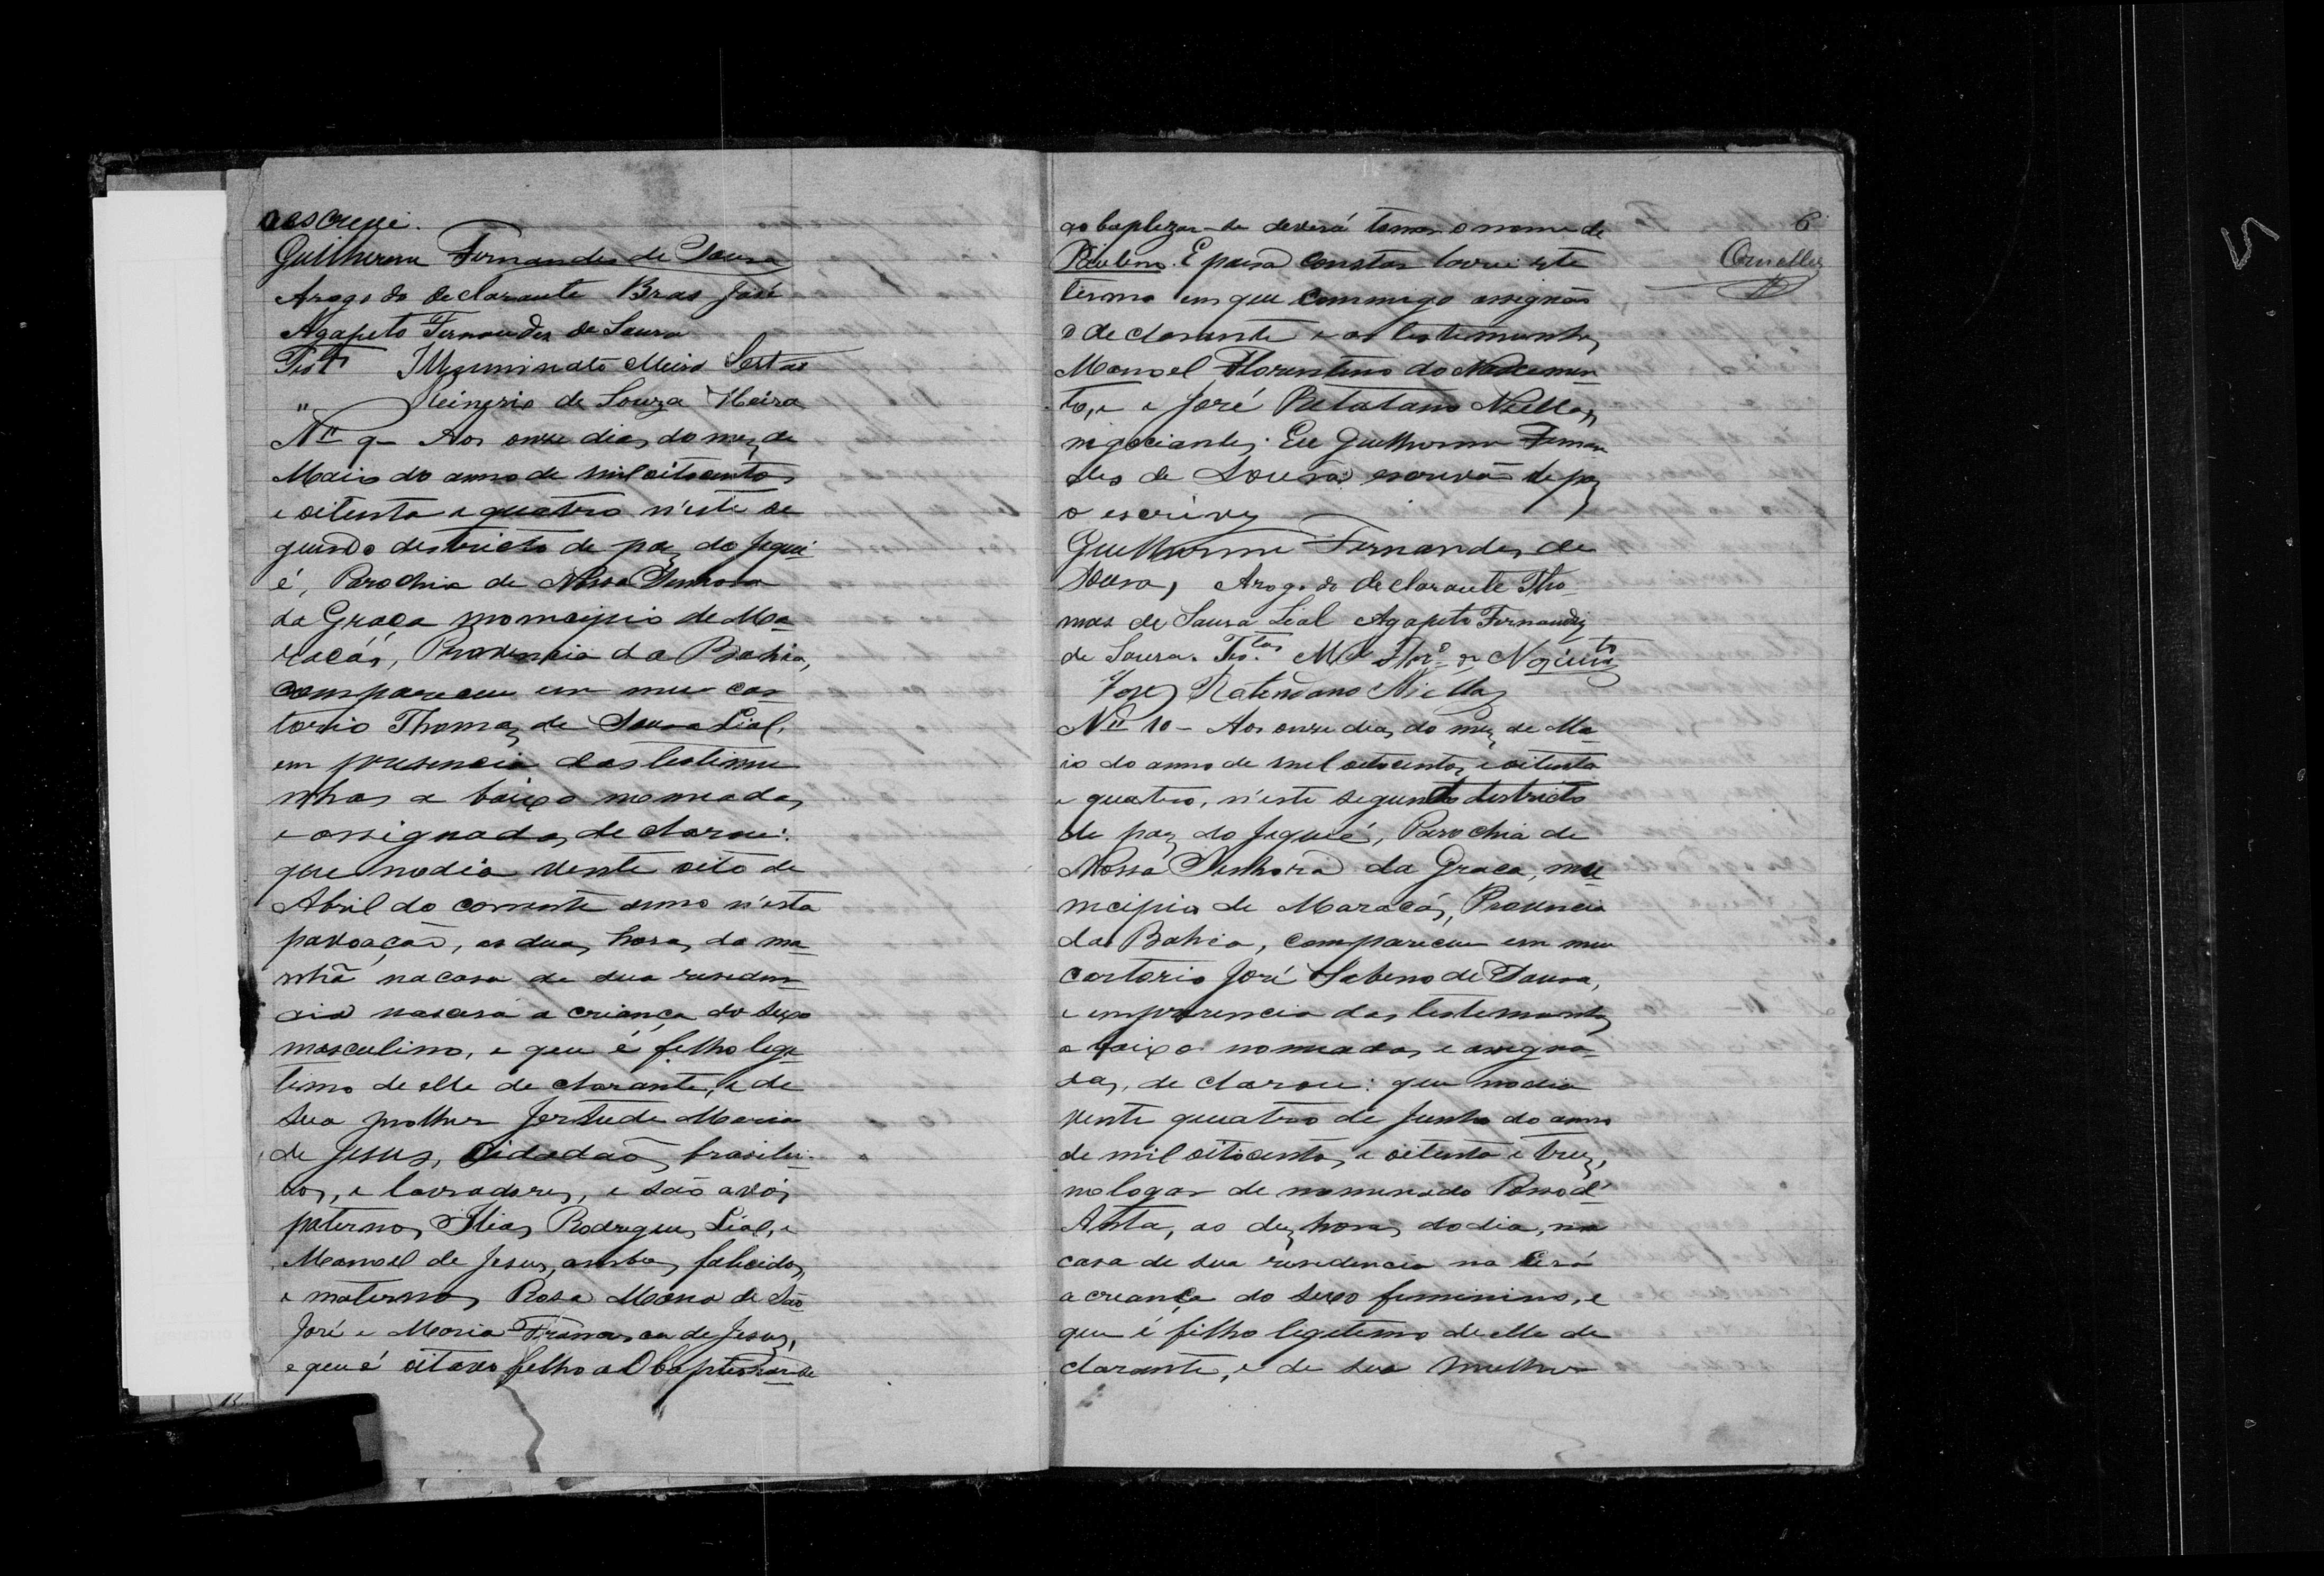 o escrevi.
Guilherme Fernandes de Sousa
Arogo do declarante Bras José
Agapeto Fernandes de Sousa
Test Illuminato Meira Sertão
" de Souza Meira
Nº 9 - Aos onze dias do mez de
Maio do anno de mil oitocentos
e oitenta e quatro n'este se
gundo destricto de paz do Jequi-
é, Parochia de Nossa Senhora
da Graça monicipio de Ma-
racás, Provencia da Bahia,
compareceu em meu car-
torio Thomaz de Sousa Lial,
em presencia das testimu
nhas a baixo nomeadas
e assignadas, declarou:
que no dia vente oito de
Abril do corrente anno n'esta
povoação, as duas horas da ma-
nhã na casa de sua residen-
cia nascera a criança do sexo
masculino, e que é filho lege
timo de elle de clarante, e de
sua molher Jertude Maria
de Jesus, Cidadãos brasilei-
ros, e lavradores, e são avós
paternos Elias Rodrigues Lial, e
Manoel de Jesus, ambos falicidos,
e maternos Rosa Maria de São
José e Maria Francisca de Jesus,
e que é oitavo filho ao baptisar-se
6
ao baptizar-se deverá tomar o nome de
Paulino. E para constar lavrei este
termo em que commigo assignão
o de clarante e as testemunhas
Manoel Florentino do Nascimen
to, e José Niella,
nigociantes. Eu Guilherme Fernan
des de Sousa escrivão de paz
o escrivy
Guilherme Fernandes de
Sousa, Arogo do declarante Tho-
mas de Sousa Lial Agapeto Fernandes
de Sousa. Tes.tas Mel Flor.o do Nascim.to
José Niella
Nº 10 - Aos onze dias do mez de Ma-
io do anno de mil oitocentos e oitenta
e quatro, n'este segundo destricto
de paz do Jequié, Parochia de
Nossa Senhora da Graça, mu-
nicipio de Maracás, Provencia
da Bahia, compareceu em meu
cartorio José Sabeno de Sousa,
e em prezencia das testemunhas
a baixo nomeadas e assigna-
das, de clarou: que no dia
vente quuatro de Junho do anno
de mil oitocentos e oitenta e trez,
no logar de nominado Passod'
Anta, as dez horas do dia, na
casa de sua residencia na cerá
a creança do sexo feminino, e
que é filho legetimo de elle de
clarante, e de sua mulher